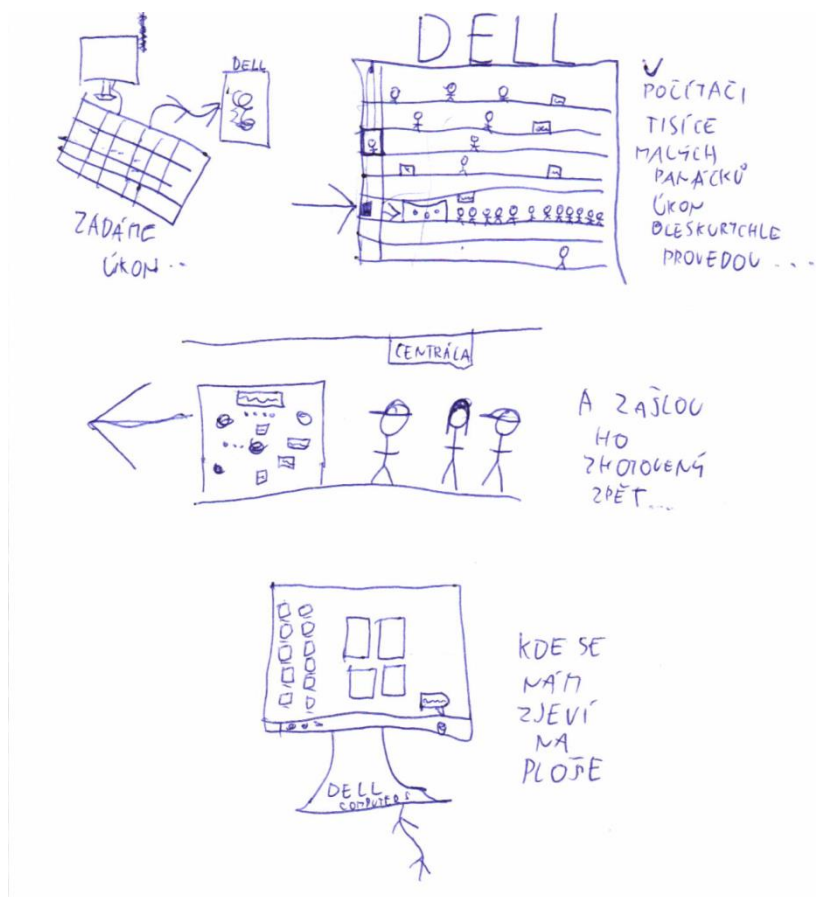 DELL
ZADÁME
ÚKON..
DELL
V
POČÍTAČI
TISÍCE
MALÝCH
PANÁČKŮ
ÚKON
BLESKURYCHLE
PROVEDOU...
CENTRÁLA
A ZAŠLOU
HO
ZHOTOVENÝ
ZPĚT...
KDE SE
NÁM
ZJEVÍ
NA
PLOŠE
DELL
COMPUTERS